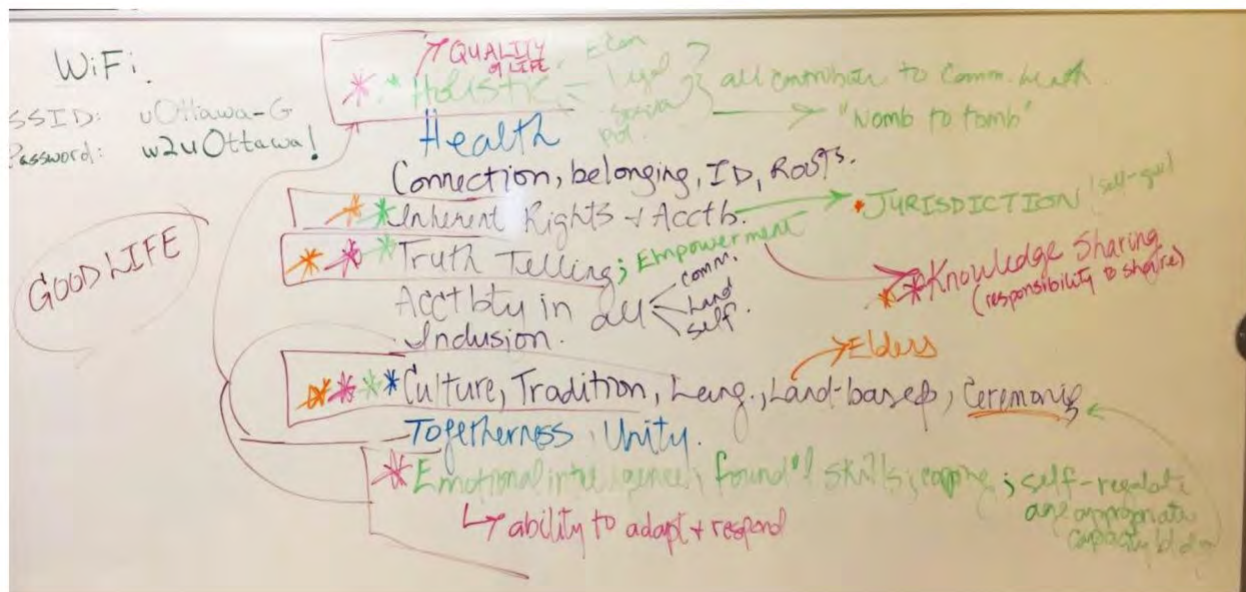 WiFi.
SSID: uOttawa-G
Password: w2uOttawa!
GOOD LIFE
QUALITY of LIFE
Holistic
Econ
Legal
Social
Pol.
all contribute to Comm. health.
"Womb to tomb"
Health
Connection, belonging, ID, Roots.
Inherent Rights + Acctb.
JURISDICTION (self-gov)
Truth Telling; Empowerment
Knowledge Sharing
(responsibility to share)
Acctbty in all
comm.
Land
self.
Inclusion.
Elders
Culture, Tradition, Lang., Land-based, Ceremonies
Togetherness, Unity.
Emotional intelligence, found'l skills, coping; self-regulate
age appropriate
capacity bldg
ability to adapt + respond